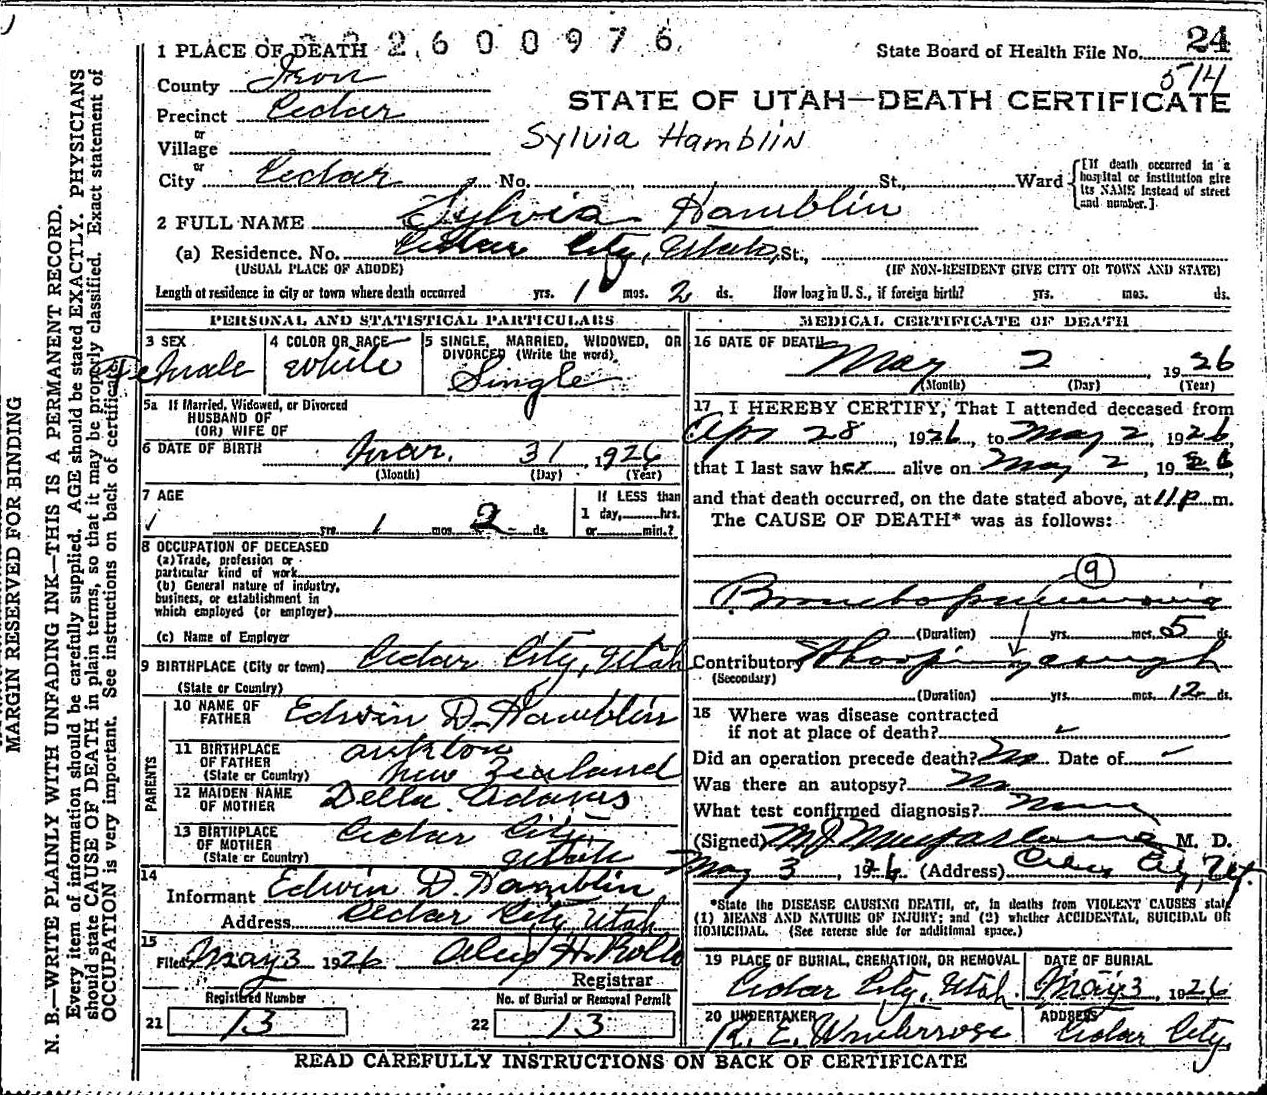 2 6 0 0 9 7 6
1 PLACE OF DEATH
State Board of Health File No. 24
514
County Iron
STATE OF UTAH—DEATH CERTIFICATE
Precinct Cedar
or
Village
Sylvia Hamblin
or
City Cedar No. St., Ward
[If death occurred in a hospital or institution give its NAME instead of street and number.]
2 FULL NAME Sylvia Hamblin
(a) Residence. No. Cedar City, Utah, St.,
(USUAL PLACE OF ABODE) (IF NON-RESIDENT GIVE CITY OR TOWN AND STATE)
Length of residence in city or town where death occurred yrs. 1 mos. 2 ds. How long in U. S., if foreign birth? yrs. mos. ds.
PERSONAL AND STATISTICAL PARTICULARS
3 SEX Female
4 COLOR OR RACE White
5 SINGLE, MARRIED, WIDOWED, OR DIVORCED (Write the word) Single
5a If Married, Widowed, or Divorced
HUSBAND OF
(OR) WIFE OF
6 DATE OF BIRTH Mar. 31, 1926
(Month) (Day) (Year)
7 AGE yrs. 1 mos. 2 ds.
If LESS than
1 day, hrs.
or min.?
8 OCCUPATION OF DECEASED
(a) Trade, profession or
particular kind of work
(b) General nature of industry,
business, or establishment in
which employed (or employer)
(c) Name of Employer
9 BIRTHPLACE (City or town) Cedar City, Utah
(State or Country)
PARENTS
10 NAME OF FATHER Edwin D. Hamblin
11 BIRTHPLACE OF FATHER
(State or Country) New Zealand
12 MAIDEN NAME OF MOTHER Della Adams
13 BIRTHPLACE OF MOTHER Cedar City
(State or Country) Utah
14
Informant Edwin D. Hamblin
Address Cedar City Utah
15
Filed May 3 1926
Registrar
Registered Number
21 13
No. of Burial or Removal Permit
22 13
MEDICAL CERTIFICATE OF DEATH
16 DATE OF DEATH May 2, 1926
(Month) (Day) (Year)
17 I HEREBY CERTIFY, That I attended deceased from
Apr 28, 1926, to May 2, 1926,
that I last saw her alive on May 2, 1926
and that death occurred, on the date stated above, at 11 P m.
The CAUSE OF DEATH* was as follows:
9
Bronchopneumonia
(Duration) yrs. mos. 5 ds.
Contributory Whooping cough
(Secondary)
(Duration) yrs. mos. 12 ds.
18 Where was disease contracted
if not at place of death?
Did an operation precede death? No Date of
Was there an autopsy? No
What test confirmed diagnosis? None
(Signed) M. D.
May 3, 1926 (Address) Cedar City, Ut.
*State the DISEASE CAUSING DEATH, or, in deaths from VIOLENT CAUSES state
(1) MEANS AND NATURE OF INJURY; and (2) whether ACCIDENTAL, SUICIDAL OR
HOMICIDAL. (See reverse side for additional space.)
19 PLACE OF BURIAL, CREMATION, OR REMOVAL
Cedar City, Utah.
DATE OF BURIAL
May 3, 1926
20 UNDERTAKER
R. E.
ADDRESS
Cedar City
READ CAREFULLY INSTRUCTIONS ON BACK OF CERTIFICATE
MARGIN RESERVED FOR BINDING
N. B.—WRITE PLAINLY WITH UNFADING INK—THIS IS A PERMANENT RECORD.
Every item of information should be carefully supplied. AGE should be stated EXACTLY. PHYSICIANS
should state CAUSE OF DEATH in plain terms, so that it may be properly classified. Exact statement of
OCCUPATION is very important. See instructions on back of certificate.